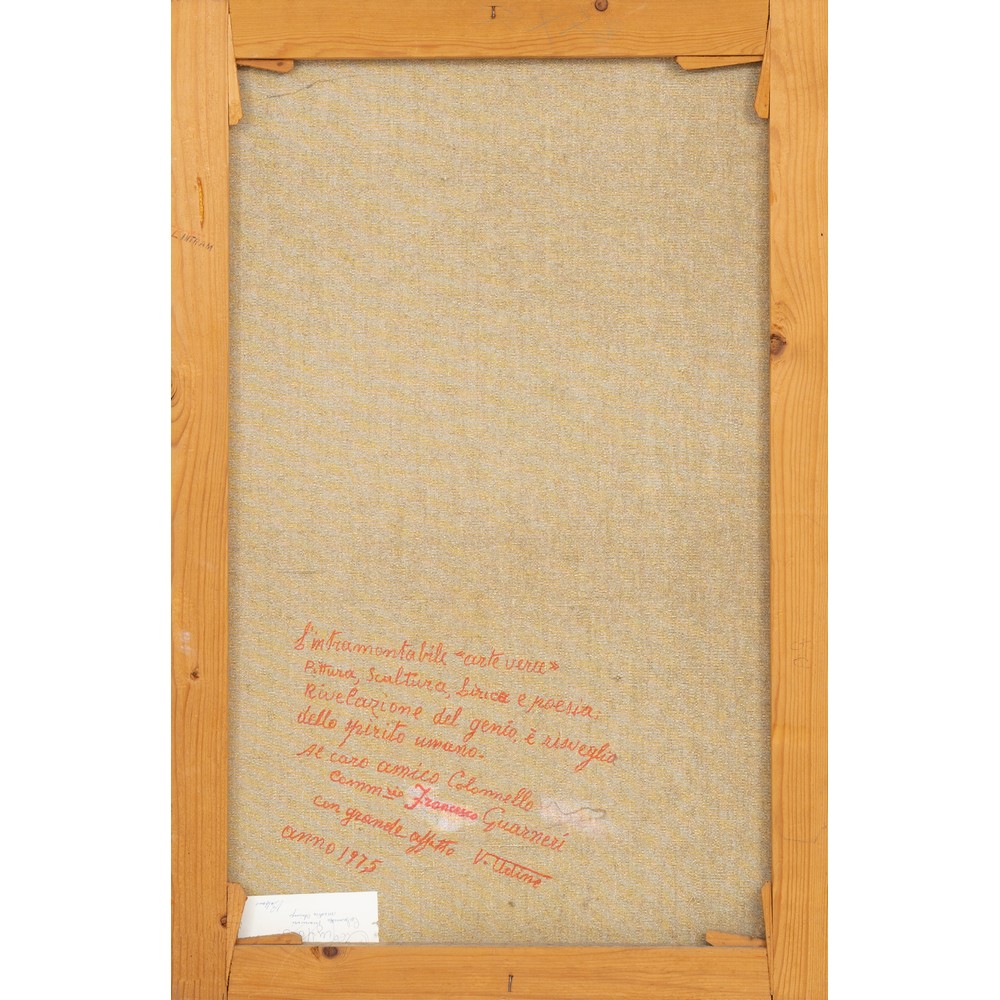 L'intramontabile "arte vera"
Pittura, Scultura, Lirica e poesia;
Rivelazione del genio, è risveglio
dello spirito umano.
Al caro amico Colonnello
Comm.rio Francesco Guarneri
con grande affetto V. Udine
anno 1975